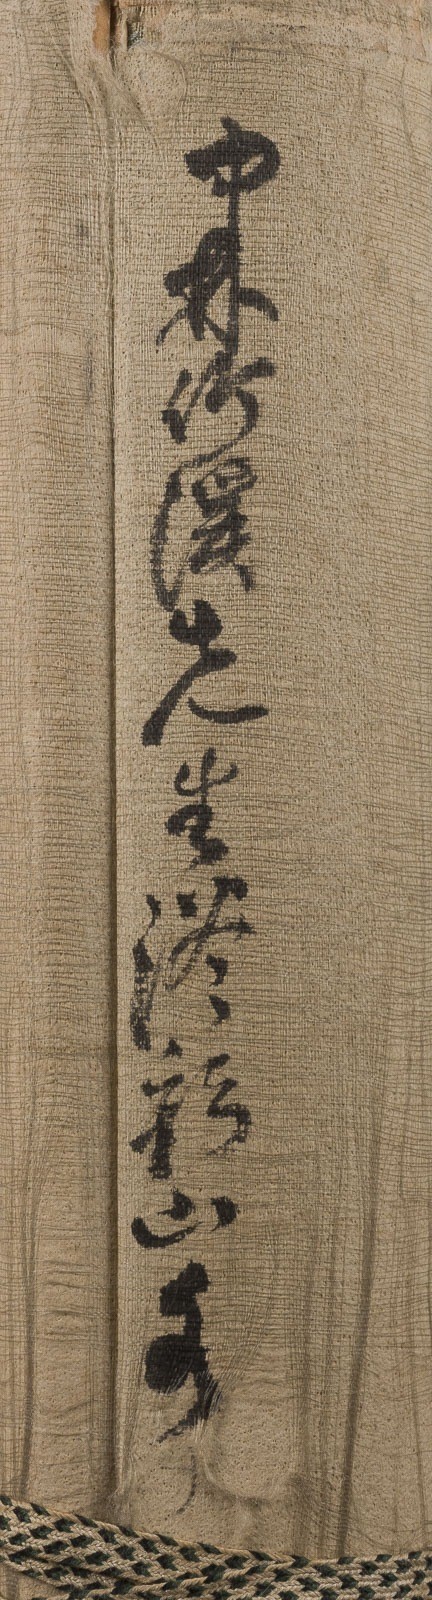 中林竹溪先生浅彩山水